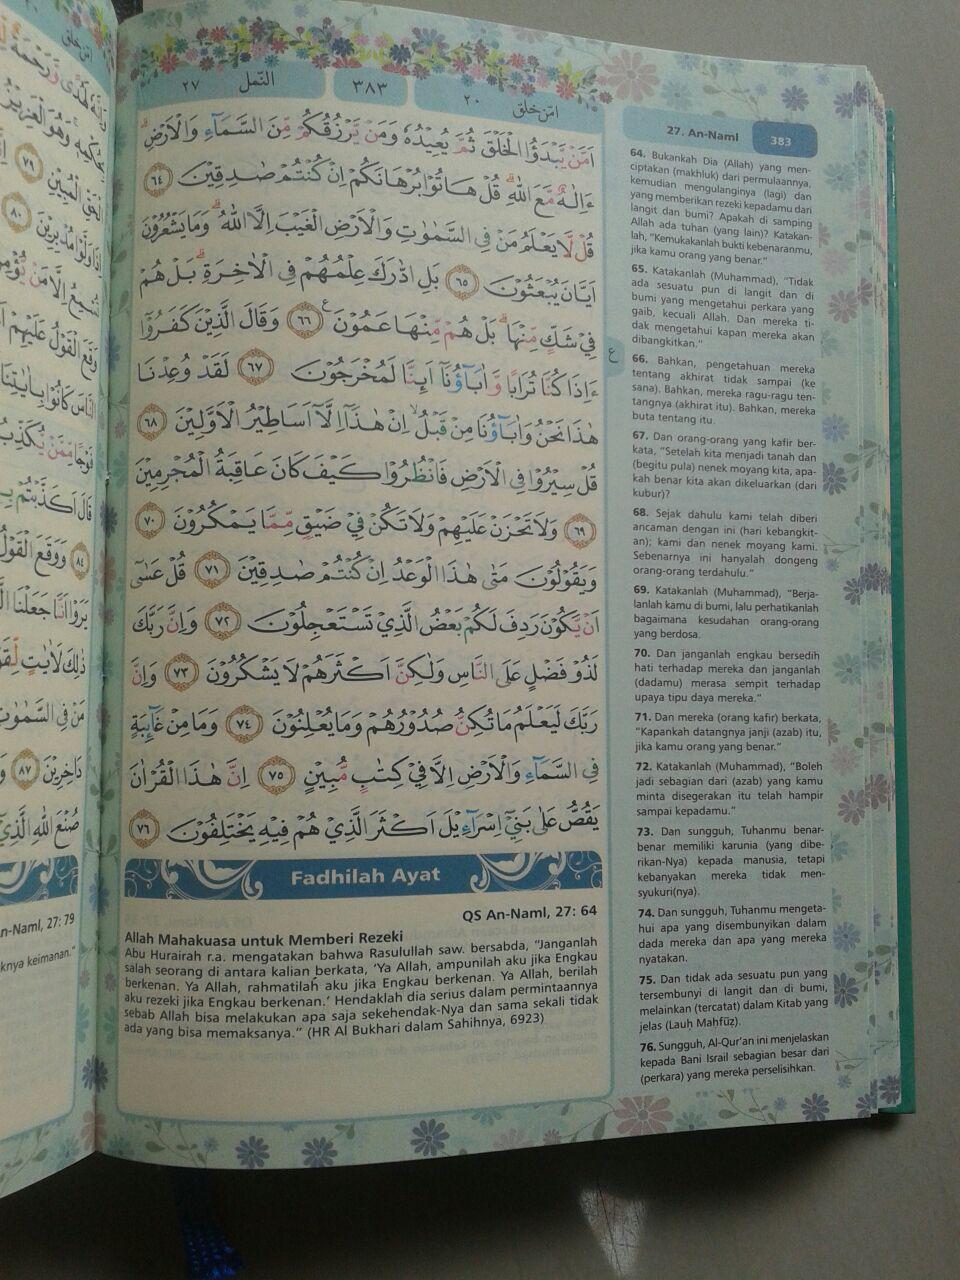 النّمل ٢٧
٣٨٣
امّن خلق ٢٠
اَمَّنْ يَّبْدَؤُا الْخَلْقَ ثُمَّ يُعِيْدُهٗ وَمَنْ يَّرْزُقُكُمْ مِّنَ السَّمَاۤءِ وَالْاَرْضِۗ
ءَاِلٰهٌ مَّعَ اللّٰهِ ۗقُلْ هَاتُوْا بُرْهَانَكُمْ اِنْ كُنْتُمْ صٰدِقِيْنَ ٦٤
قُلْ لَّا يَعْلَمُ مَنْ فِى السَّمٰوٰتِ وَالْاَرْضِ الْغَيْبَ اِلَّا اللّٰهُ ۗوَمَا يَشْعُرُوْنَ
اَيَّانَ يُبْعَثُوْنَ ٦٥ بَلِ ادّٰرَكَ عِلْمُهُمْ فِى الْاٰخِرَةِ ۗبَلْ هُمْ
فِيْ شَكٍّ مِّنْهَاۗ بَلْ هُمْ مِّنْهَا عَمُوْنَ ࣖ ٦٦ وَقَالَ الَّذِيْنَ كَفَرُوْٓا
ءَاِذَا كُنَّا تُرَابًا وَّاٰبَاۤؤُنَآ اَىِٕنَّا لَمُخْرَجُوْنَ ٦٧ لَقَدْ وُعِدْنَا
هٰذَا نَحْنُ وَاٰبَاۤؤُنَا مِنْ قَبْلُۙ اِنْ هٰذَآ اِلَّآ اَسَاطِيْرُ الْاَوَّلِيْنَ ٦٨
قُلْ سِيْرُوْا فِى الْاَرْضِ فَانْظُرُوْا كَيْفَ كَانَ عَاقِبَةُ الْمُجْرِمِيْنَ
٦٩ وَلَا تَحْزَنْ عَلَيْهِمْ وَلَا تَكُنْ فِيْ ضَيْقٍ مِّمَّا يَمْكُرُوْنَ ٧٠
وَيَقُوْلُوْنَ مَتٰى هٰذَا الْوَعْدُ اِنْ كُنْتُمْ صٰدِقِيْنَ ٧١ قُلْ عَسٰٓى
اَنْ يَّكُوْنَ رَدِفَ لَكُمْ بَعْضُ الَّذِيْ تَسْتَعْجِلُوْنَ ٧٢ وَاِنَّ رَبَّكَ
لَذُوْ فَضْلٍ عَلَى النَّاسِ وَلٰكِنَّ اَكْثَرَهُمْ لَا يَشْكُرُوْنَ ٧٣ وَاِنَّ
رَبَّكَ لَيَعْلَمُ مَا تُكِنُّ صُدُوْرُهُمْ وَمَا يُعْلِنُوْنَ ٧٤ وَمَا مِنْ غَاۤىِٕبَةٍ
فِى السَّمَاۤءِ وَالْاَرْضِ اِلَّا فِيْ كِتٰبٍ مُّبِيْنٍ ٧٥ اِنَّ هٰذَا الْقُرْاٰنَ
يَقُصُّ عَلٰى بَنِيْٓ اِسْرَاۤءِيْلَ اَكْثَرَ الَّذِيْ هُمْ فِيْهِ يَخْتَلِفُوْنَ ٧٦
Fadhilah Ayat
QS An-Naml, 27: 64
Allah Mahakuasa untuk Memberi Rezeki
Abu Hurairah r.a. mengatakan bahwa Rasulullah saw. bersabda, "Janganlah
salah seorang di antara kalian berkata, 'Ya Allah, ampunilah aku jika Engkau
berkenan. Ya Allah, rahmatilah aku jika Engkau berkenan. Ya Allah, berilah
aku rezeki jika Engkau berkenan.' Hendaklah dia serius dalam permintaannya
sebab Allah bisa melakukan apa saja sekehendak-Nya dan sama sekali tidak
ada yang bisa memaksanya." (HR Al Bukhari dalam Sahihnya, 6923)
ع
27. An-Naml 383
64. Bukankah Dia (Allah) yang men-
ciptakan (makhluk) dari permulaannya,
kemudian mengulanginya (lagi) dan
yang memberikan rezeki kepadamu dari
langit dan bumi? Apakah di samping
Allah ada tuhan (yang lain)? Katakan-
lah, "Kemukakanlah bukti kebenaranmu,
jika kamu orang yang benar."
65. Katakanlah (Muhammad), "Tidak
ada sesuatu pun di langit dan di
bumi yang mengetahui perkara yang
gaib, kecuali Allah. Dan mereka ti-
dak mengetahui kapan mereka akan
dibangkitkan."
66. Bahkan, pengetahuan mereka
tentang akhirat tidak sampai (ke
sana). Bahkan, mereka ragu-ragu ten-
tangnya (akhirat itu). Bahkan, mereka
buta tentang itu.
67. Dan orang-orang yang kafir ber-
kata, "Setelah kita menjadi tanah dan
(begitu pula) nenek moyang kita, apa-
kah benar kita akan dikeluarkan (dari
kubur)?
68. Sejak dahulu kami telah diberi
ancaman dengan ini (hari kebangkit-
an); kami dan nenek moyang kami.
Sebenarnya ini hanyalah dongeng
orang-orang terdahulu."
69. Katakanlah (Muhammad), "Berja-
lanlah kamu di bumi, lalu perhatikanlah
bagaimana kesudahan orang-orang
yang berdosa.
70. Dan janganlah engkau bersedih
hati terhadap mereka dan janganlah
(dadamu) merasa sempit terhadap
upaya tipu daya mereka."
71. Dan mereka (orang kafir) berkata,
"Kapankah datangnya janji (azab) itu,
jika kamu orang yang benar."
72. Katakanlah (Muhammad), "Boleh
jadi sebagian dari (azab) yang kamu
minta disegerakan itu telah hampir
sampai kepadamu."
73. Dan sungguh, Tuhanmu benar-
benar memiliki karunia (yang dibe-
rikan-Nya) kepada manusia, tetapi
kebanyakan mereka tidak men-
syukuri(nya).
74. Dan sungguh, Tuhanmu mengeta-
hui apa yang disembunyikan dalam
dada mereka dan apa yang mereka
nyatakan.
75. Dan tidak ada sesuatu pun yang
tersembunyi di langit dan di bumi,
melainkan (tercatat) dalam Kitab yang
jelas (Lauḥ Maḥfūẓ).
76. Sungguh, Al-Qur'an ini menjelaskan
kepada Bani Israil sebagian besar dari
(perkara) yang mereka perselisihkan.
n-Naml, 27: 79
knya keimanan."